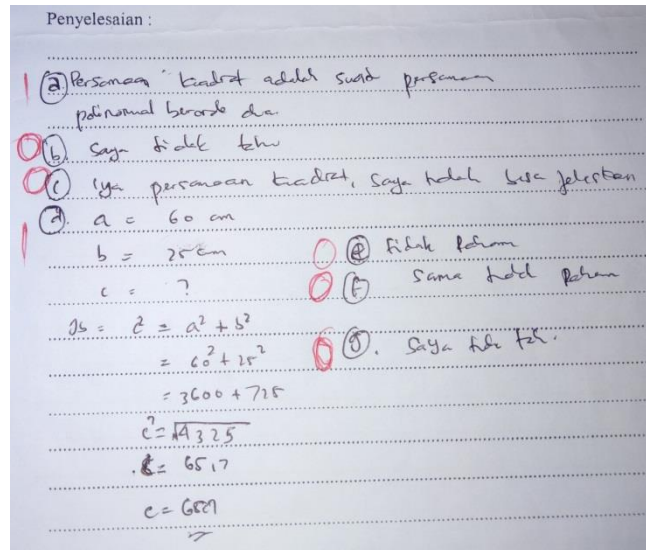 Penyelesaian :
1 a. Persamaan kuadrat adalah suatu persamaan
polinomial berorde dua.
0 b. Saya tidak tahu
0 c iya persamaan kuadrat, saya tidak bisa jelaskan
1 d. a = 60 cm
b = 25 cm
c = ?
Jb = c² = a² + b²
= 60² + 25²
= 3600 + 725
c² = √4325
= 65,7
c = 65,7
0 e tidak paham
0 f sama tidak paham
0 g. Saya tidak tahu.